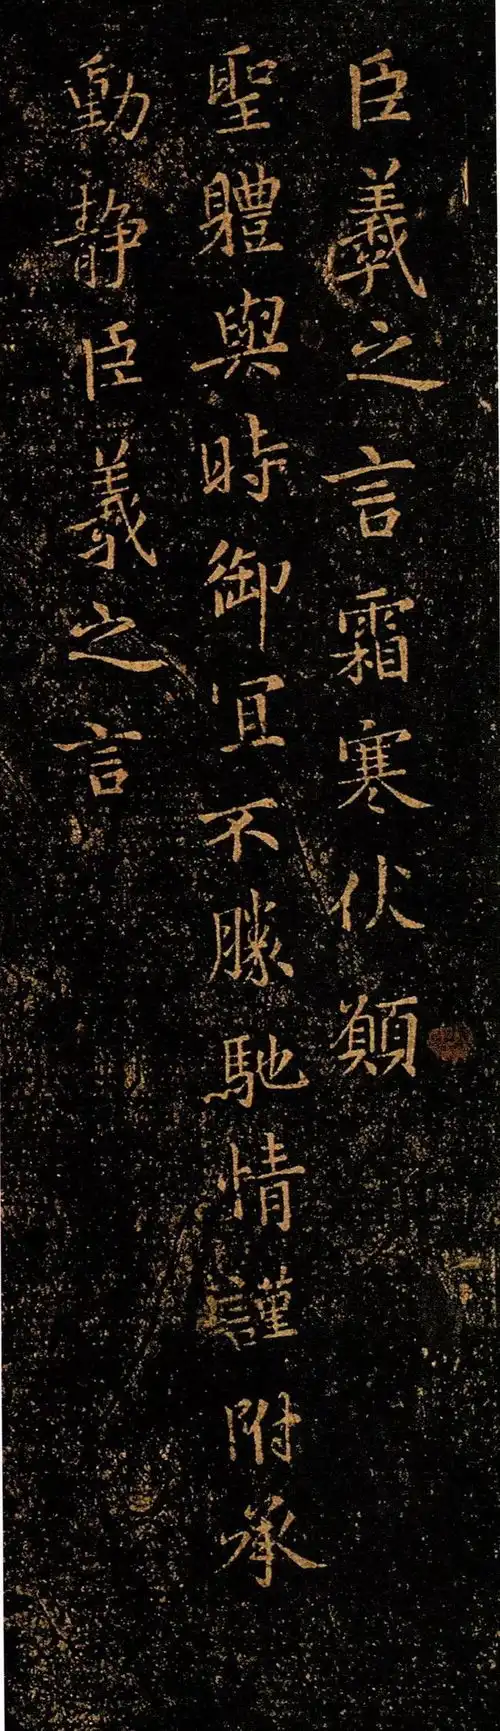 臣羲之言霜寒伏願
聖體與時御宜不勝馳情謹附承
動靜臣羲之言